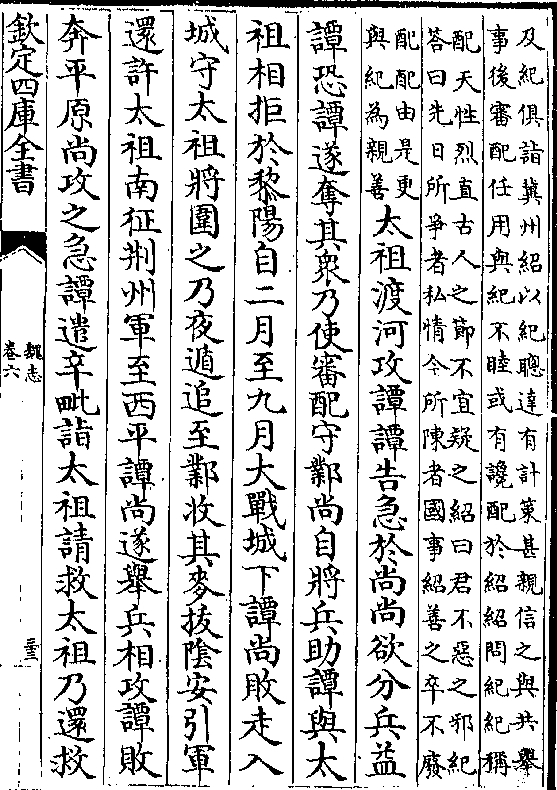 及紀俱詣冀州紹以紀聰達有計策甚親信之與共舉
事後審配任用與紀不睦或有讒配於紹紹問紀紀稱
配天性烈直古人之節不宜疑之紹曰君不惡之邪紀
荅曰先日所爭者私情今所陳者國事紹善之卒不廢
配配由是更
與紀為親善
太祖渡河攻譚譚告急於尚尚欲分兵益
譚恐譚遂奪其衆乃使審配守鄴尚自將兵助譚與太
祖相拒於黎陽自二月至九月大戰城下譚尚敗走入
城守太祖將圍之乃夜遁追至鄴收其麥拔陰安引軍
還許太祖南征荆州軍至西平譚尚遂舉兵相攻譚敗
奔平原尚攻之急譚遣辛毗詣太祖請救太祖乃還救
欽定四庫全書
魏志
卷六